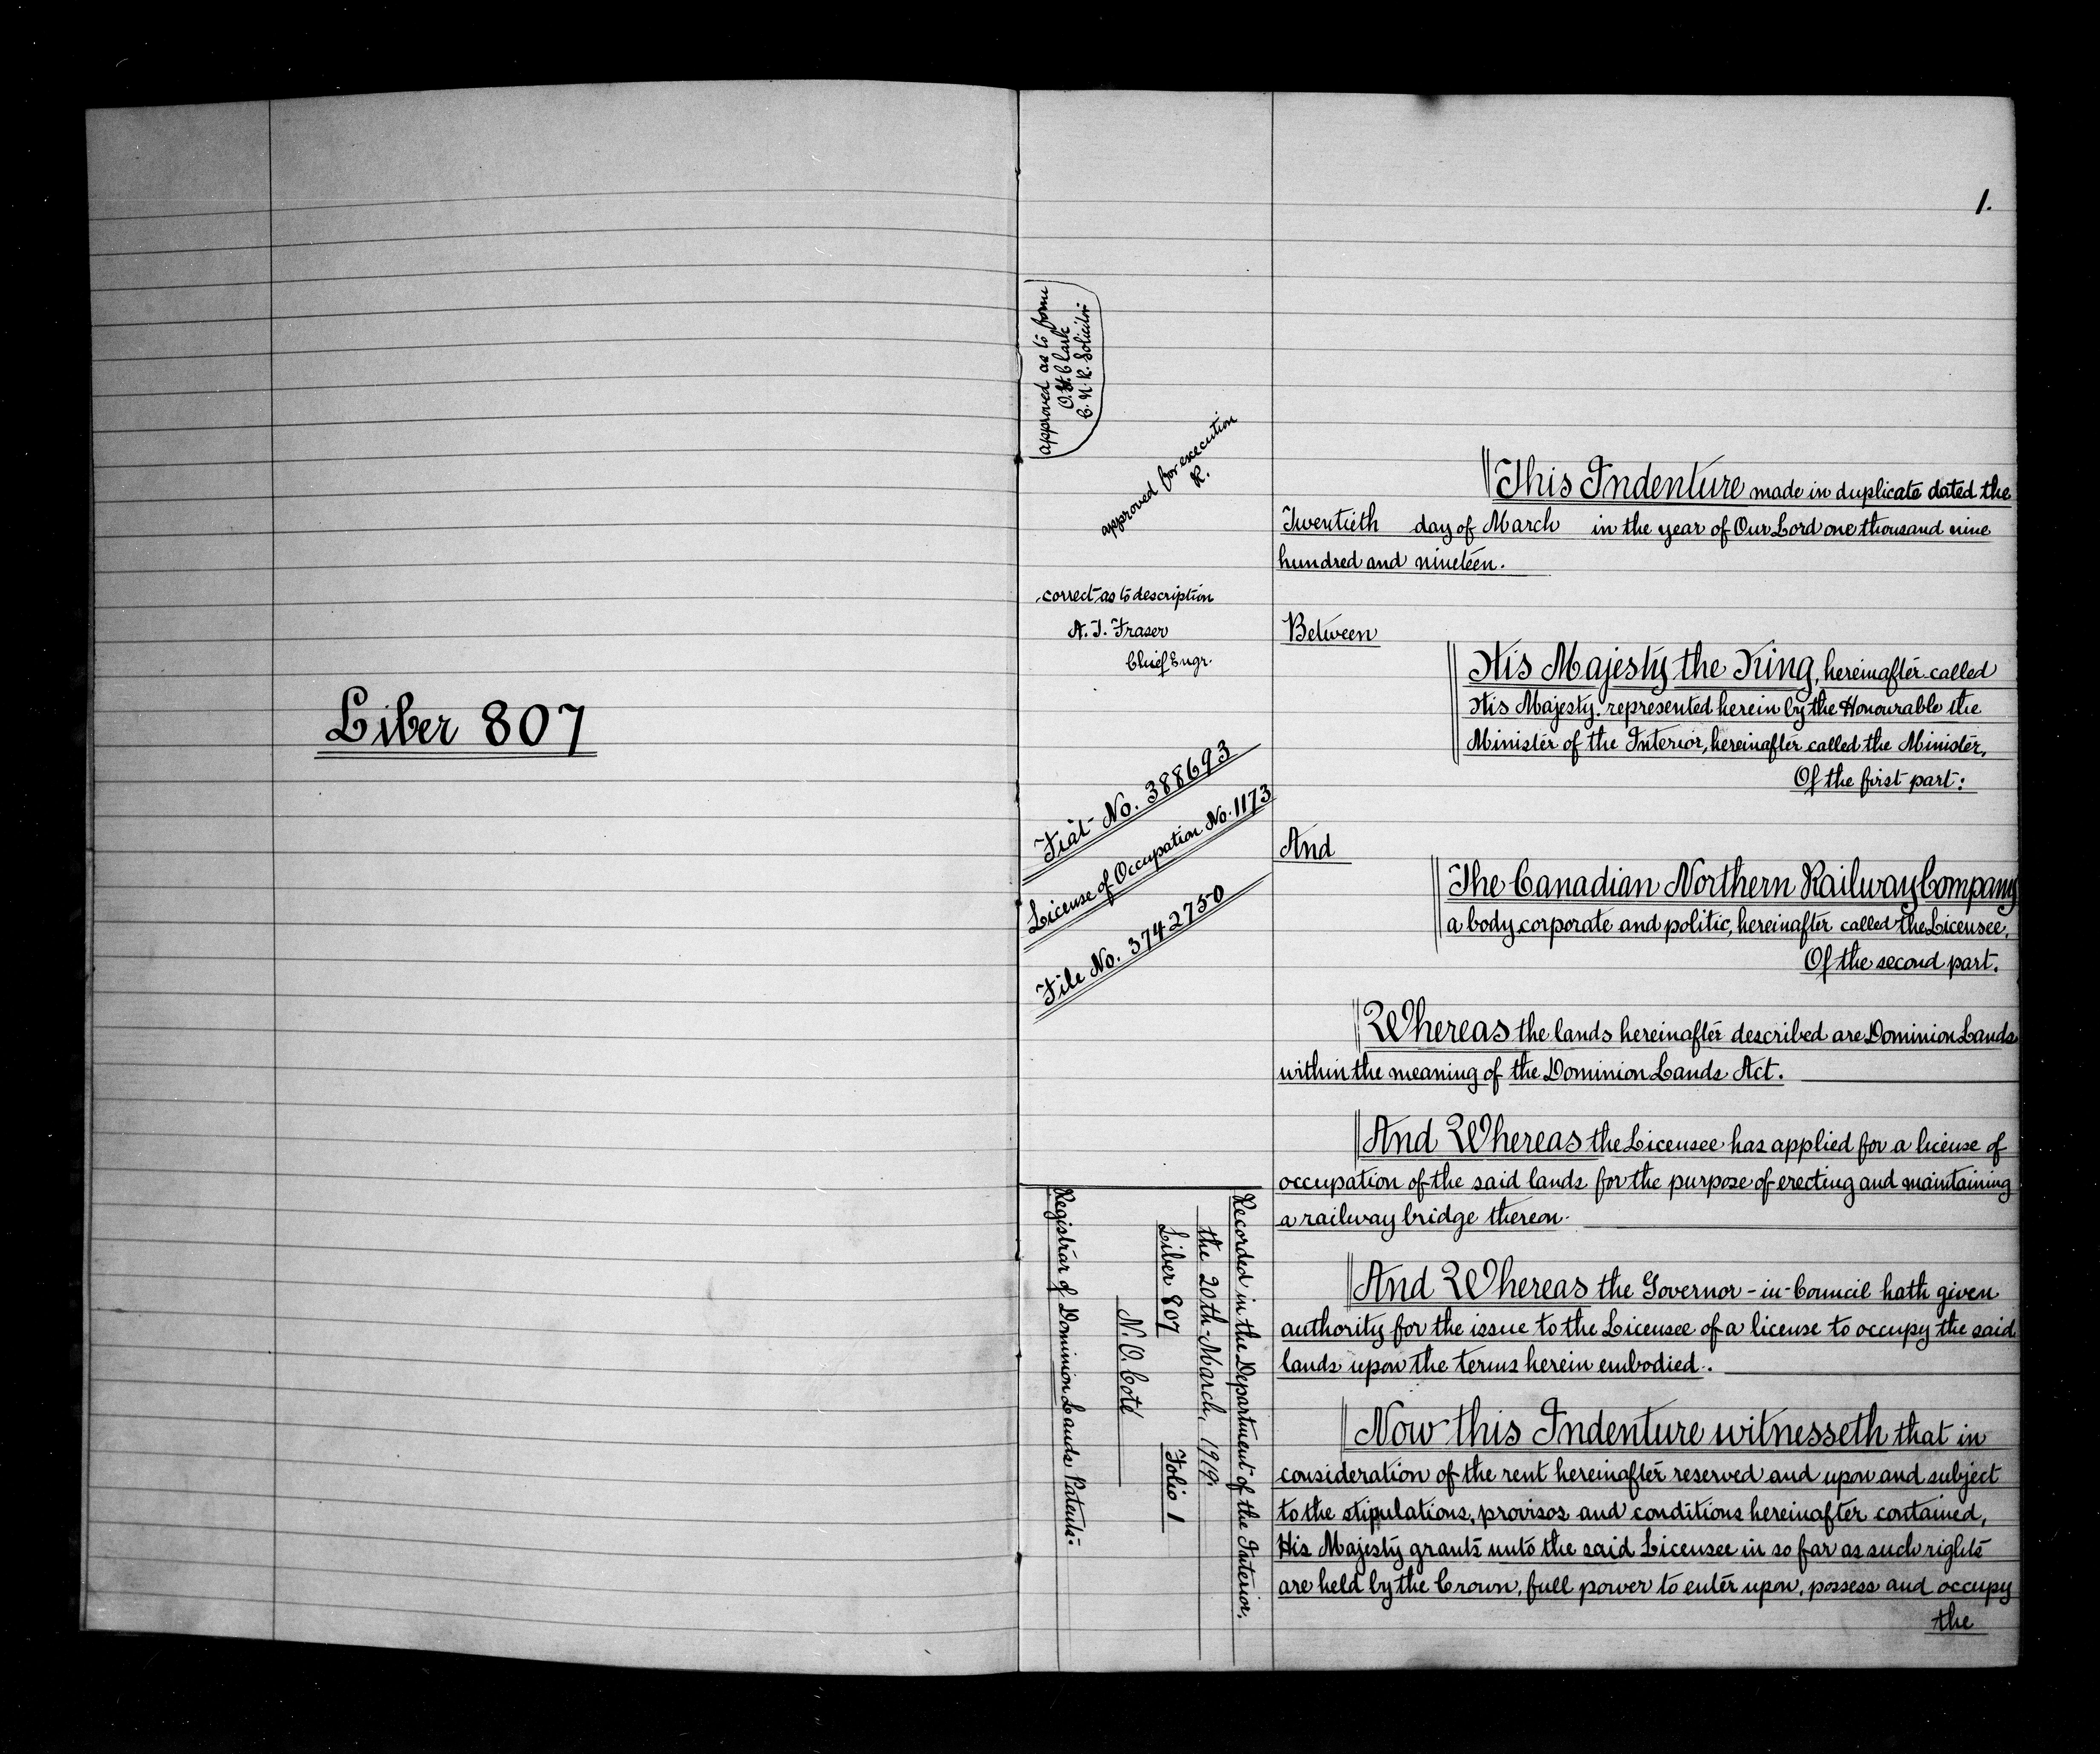 Liber 807
1.
approved as to form
O.H. Clark
C. N. R. Solicitor
approved for execution
R.
correct as to description
A. T. Fraser
Chief Engr.
Fiat No. 388693
License of Occupation No. 1173
File No. 3742750
Recorded in the Department of the Interior,
the 20th March, 1919.
Liber 807 Folio 1
N. O. Coté
Registrar of Dominion Lands Patents.
This Indenture made in duplicate dated the
Twentieth day of March in the year of Our Lord one thousand nine
hundred and nineteen.
Between
His Majesty the King, hereinafter called
His Majesty, represented herein by the Honourable the
Minister of the Interior, hereinafter called the Minister,
Of the first part:
And
The Canadian Northern Railway Company
a body corporate and politic, hereinafter called the Licensee,
Of the second part.
Whereas the lands hereinafter described are Dominion Lands
within the meaning of the Dominion Lands Act.
And Whereas the Licensee has applied for a license of
occupation of the said lands for the purpose of erecting and maintaining
a railway bridge thereon.
And Whereas the Governor-in-Council hath given
authority for the issue to the Licensee of a license to occupy the said
lands upon the terms herein embodied.
Now this Indenture witnesseth that in
consideration of the rent hereinafter reserved and upon and subject
to the stipulations, provisos and conditions hereinafter contained,
His Majesty grants unto the said Licensee in so far as such rights
are held by the Crown, full power to enter upon, possess and occupy
the